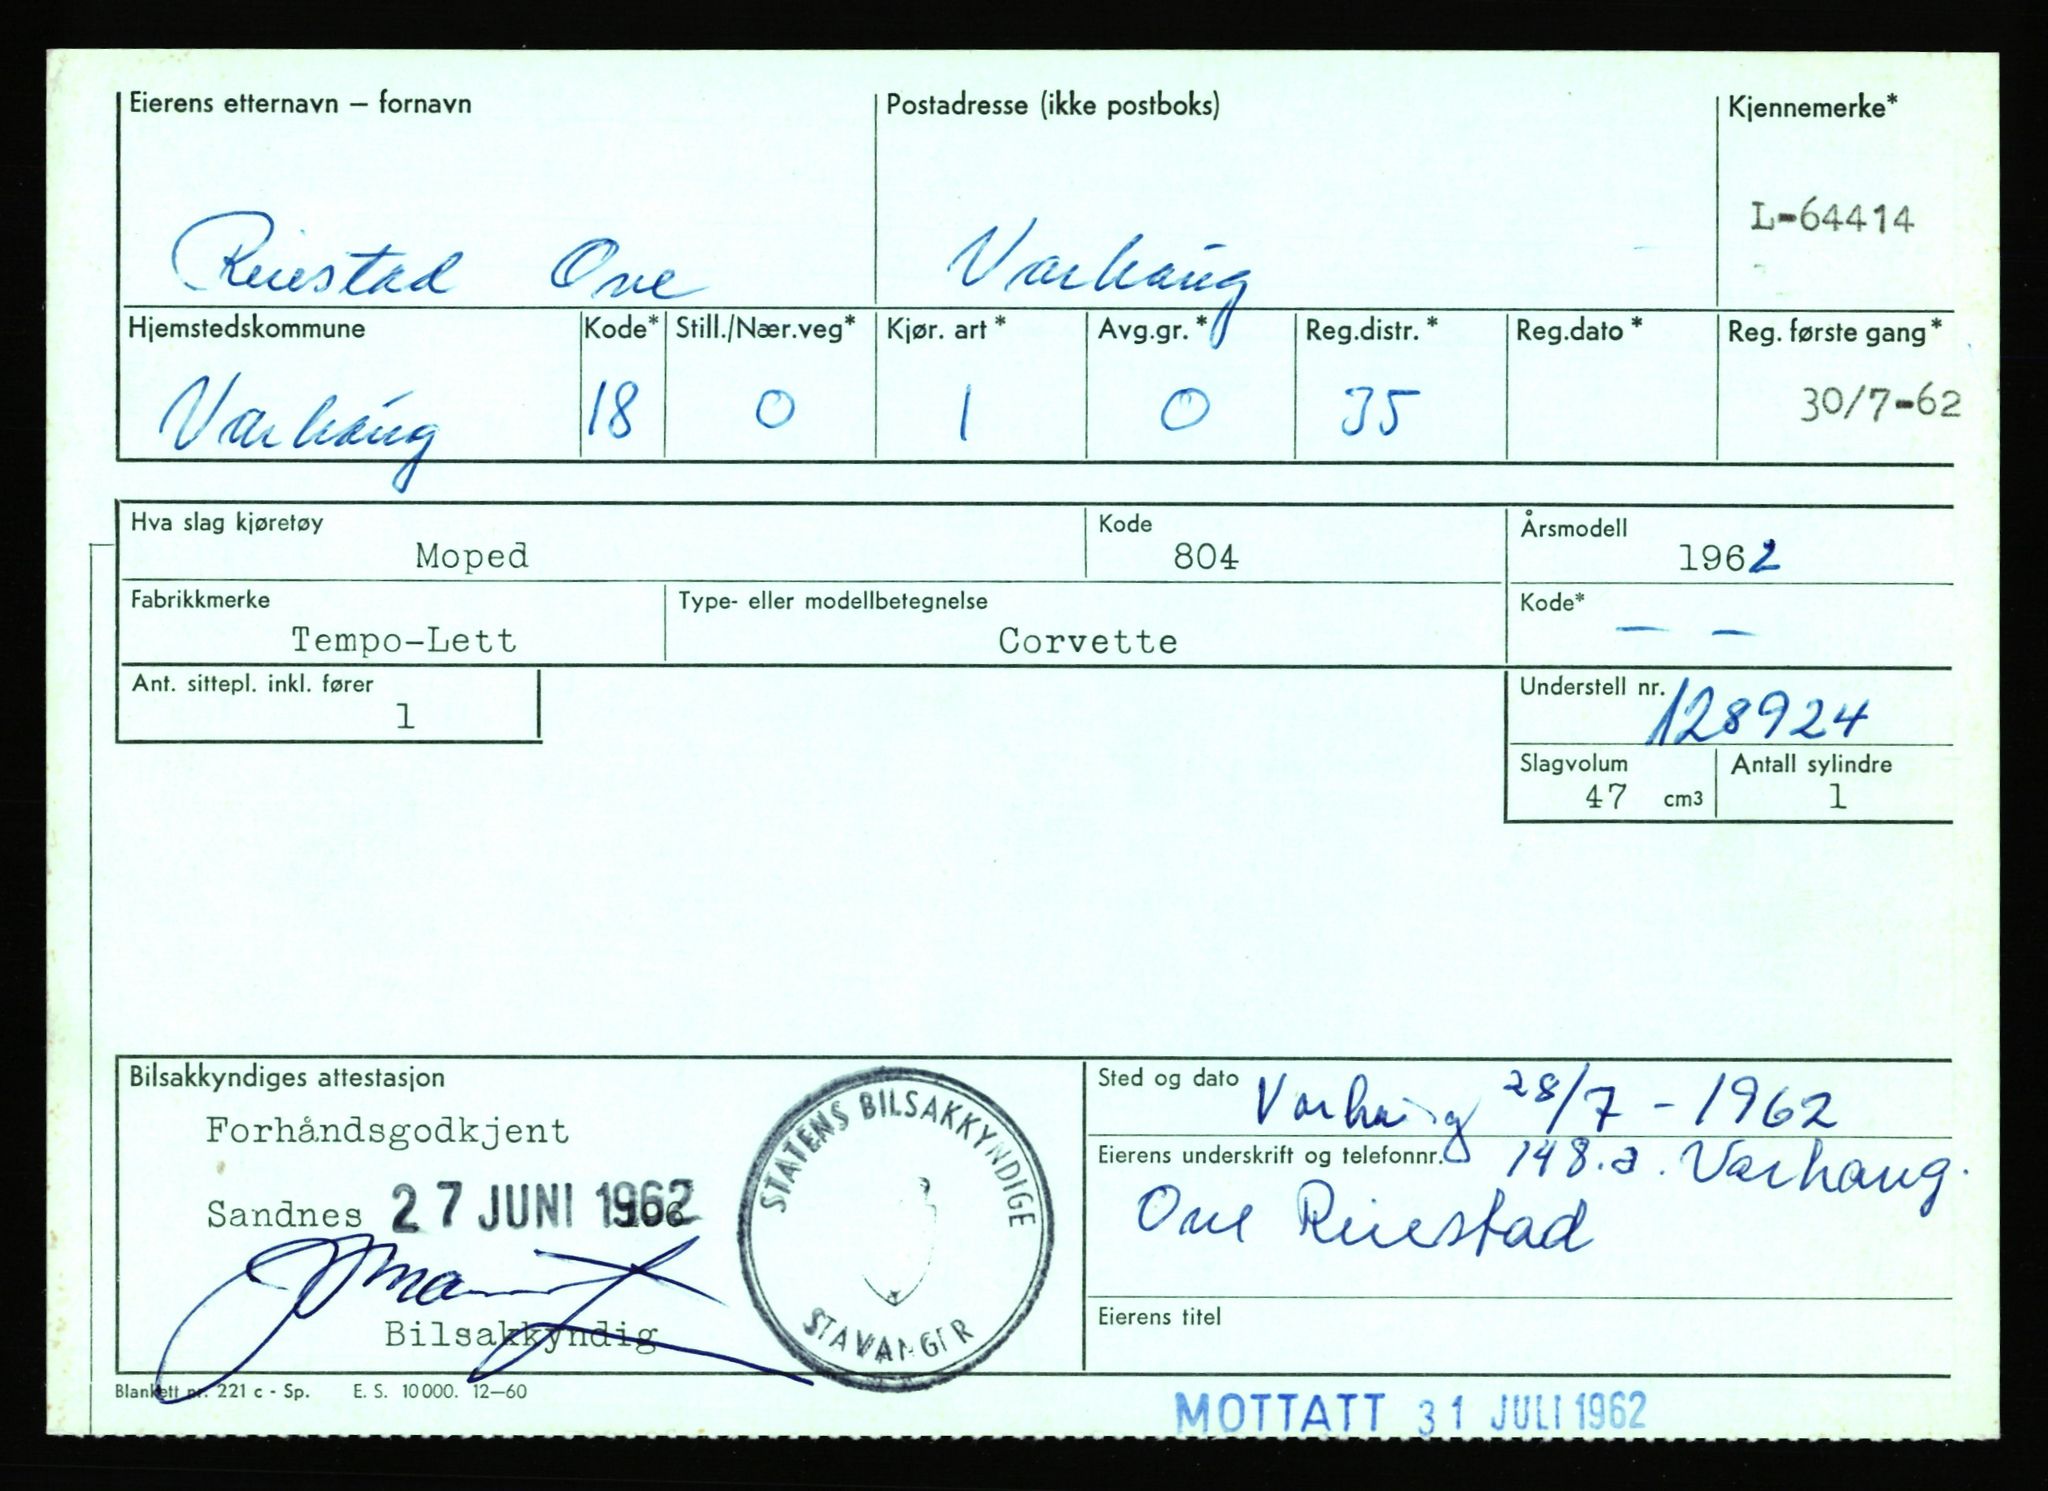 Eierens etternavn – fornavn Postadresse (ikke postboks) Kjennemerke*
L-64414
Reiestad Ove Varhaug
Hjemstedskommune Kode* Still./Nær.veg* Kjør. art* Avg.gr.* Reg.distr.* Reg.dato* Reg. første gang*
Varhaug 18 0 1 0 35 30/7-62
Hva slag kjøretøy Kode Årsmodell
Moped 804 1962
Fabrikkmerke Type- eller modellbetegnelse Kode*
Tempo-Lett Corvette — —
Ant. sittepl. inkl. fører Understell nr.
1 128924
Slagvolum Antall sylindre
47 cm3 1
Bilsakkyndiges attestasjon
Forhåndsgodkjent
Sandnes 27 JUNI 1962
Bilsakkyndig
STATENS BILSAKKYNDIGE
STAVANGER
Sted og dato Varhaug 28/7 - 1962
Eierens underskrift og telefonnr. 148.a. Varhaug.
Ove Reiestad
Eierens titel
Blankett nr. 221 c - Sp. E. S. 10000. 12—60
MOTTATT 31 JULI 1962